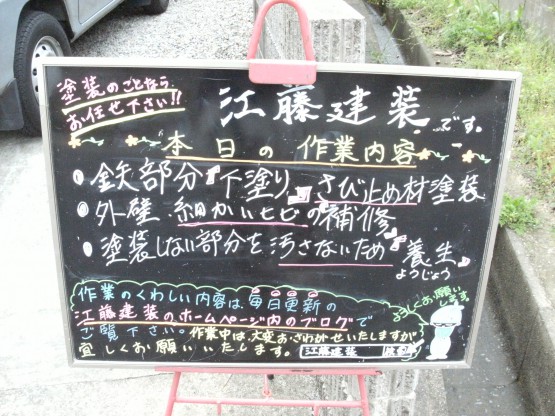 塗装のことなら
お任せ下さい!!
江藤建装です。
本日の作業内容
鉄部分『下塗り』さび止め材塗装
外壁 細かいヒビの補修
塗装しない部分を汚さないため『養生』
ようじょう
作業のくわしい内容は、毎日更新の
江藤建装のホームページ内のブログで
ご覧下さい。作業中は、大変おさわがせいたしますが
宜しくお願いいたします。江藤建装
よろしくお願いします。